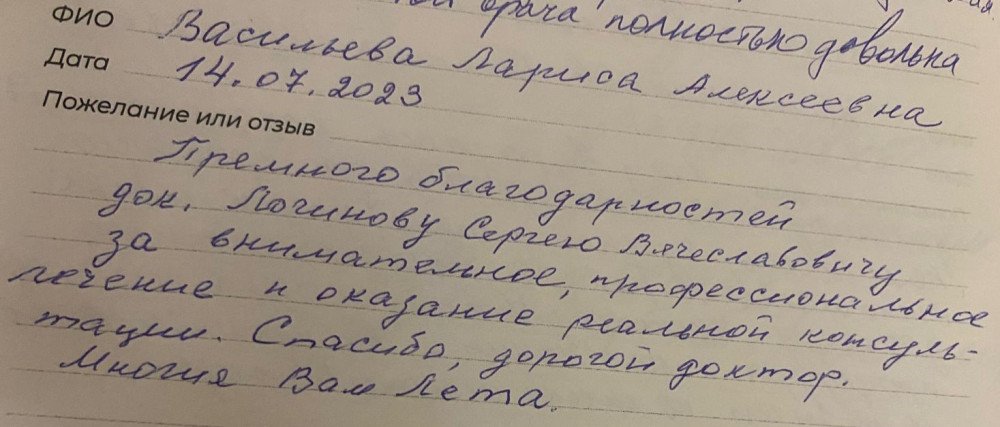 врача полностью довольна
ФИО Васильева Лариса Алексеевна
Дата 14.07.2023
Пожелание или отзыв
Премного благодарностей
док. Логинову Сергею Вячеславовичу
за внимательное, профессиональное
лечение и оказание реальной консуль-
тации. Спасибо, дорогой доктор.
Многия Вам Лета.